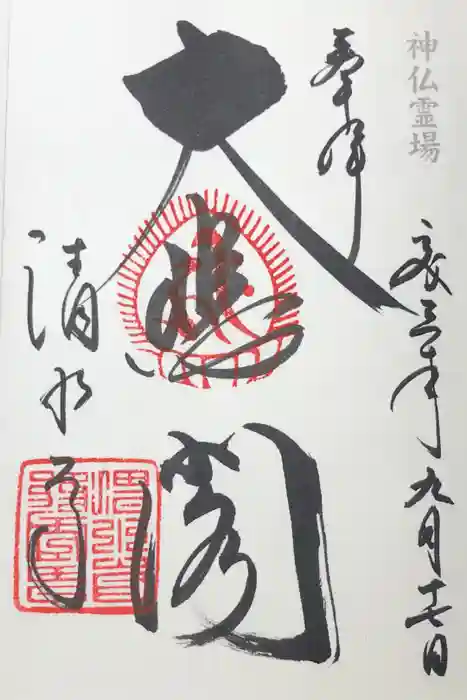 神仏霊場
奉拝
令三年九月十七日
大悲閣
清水寺